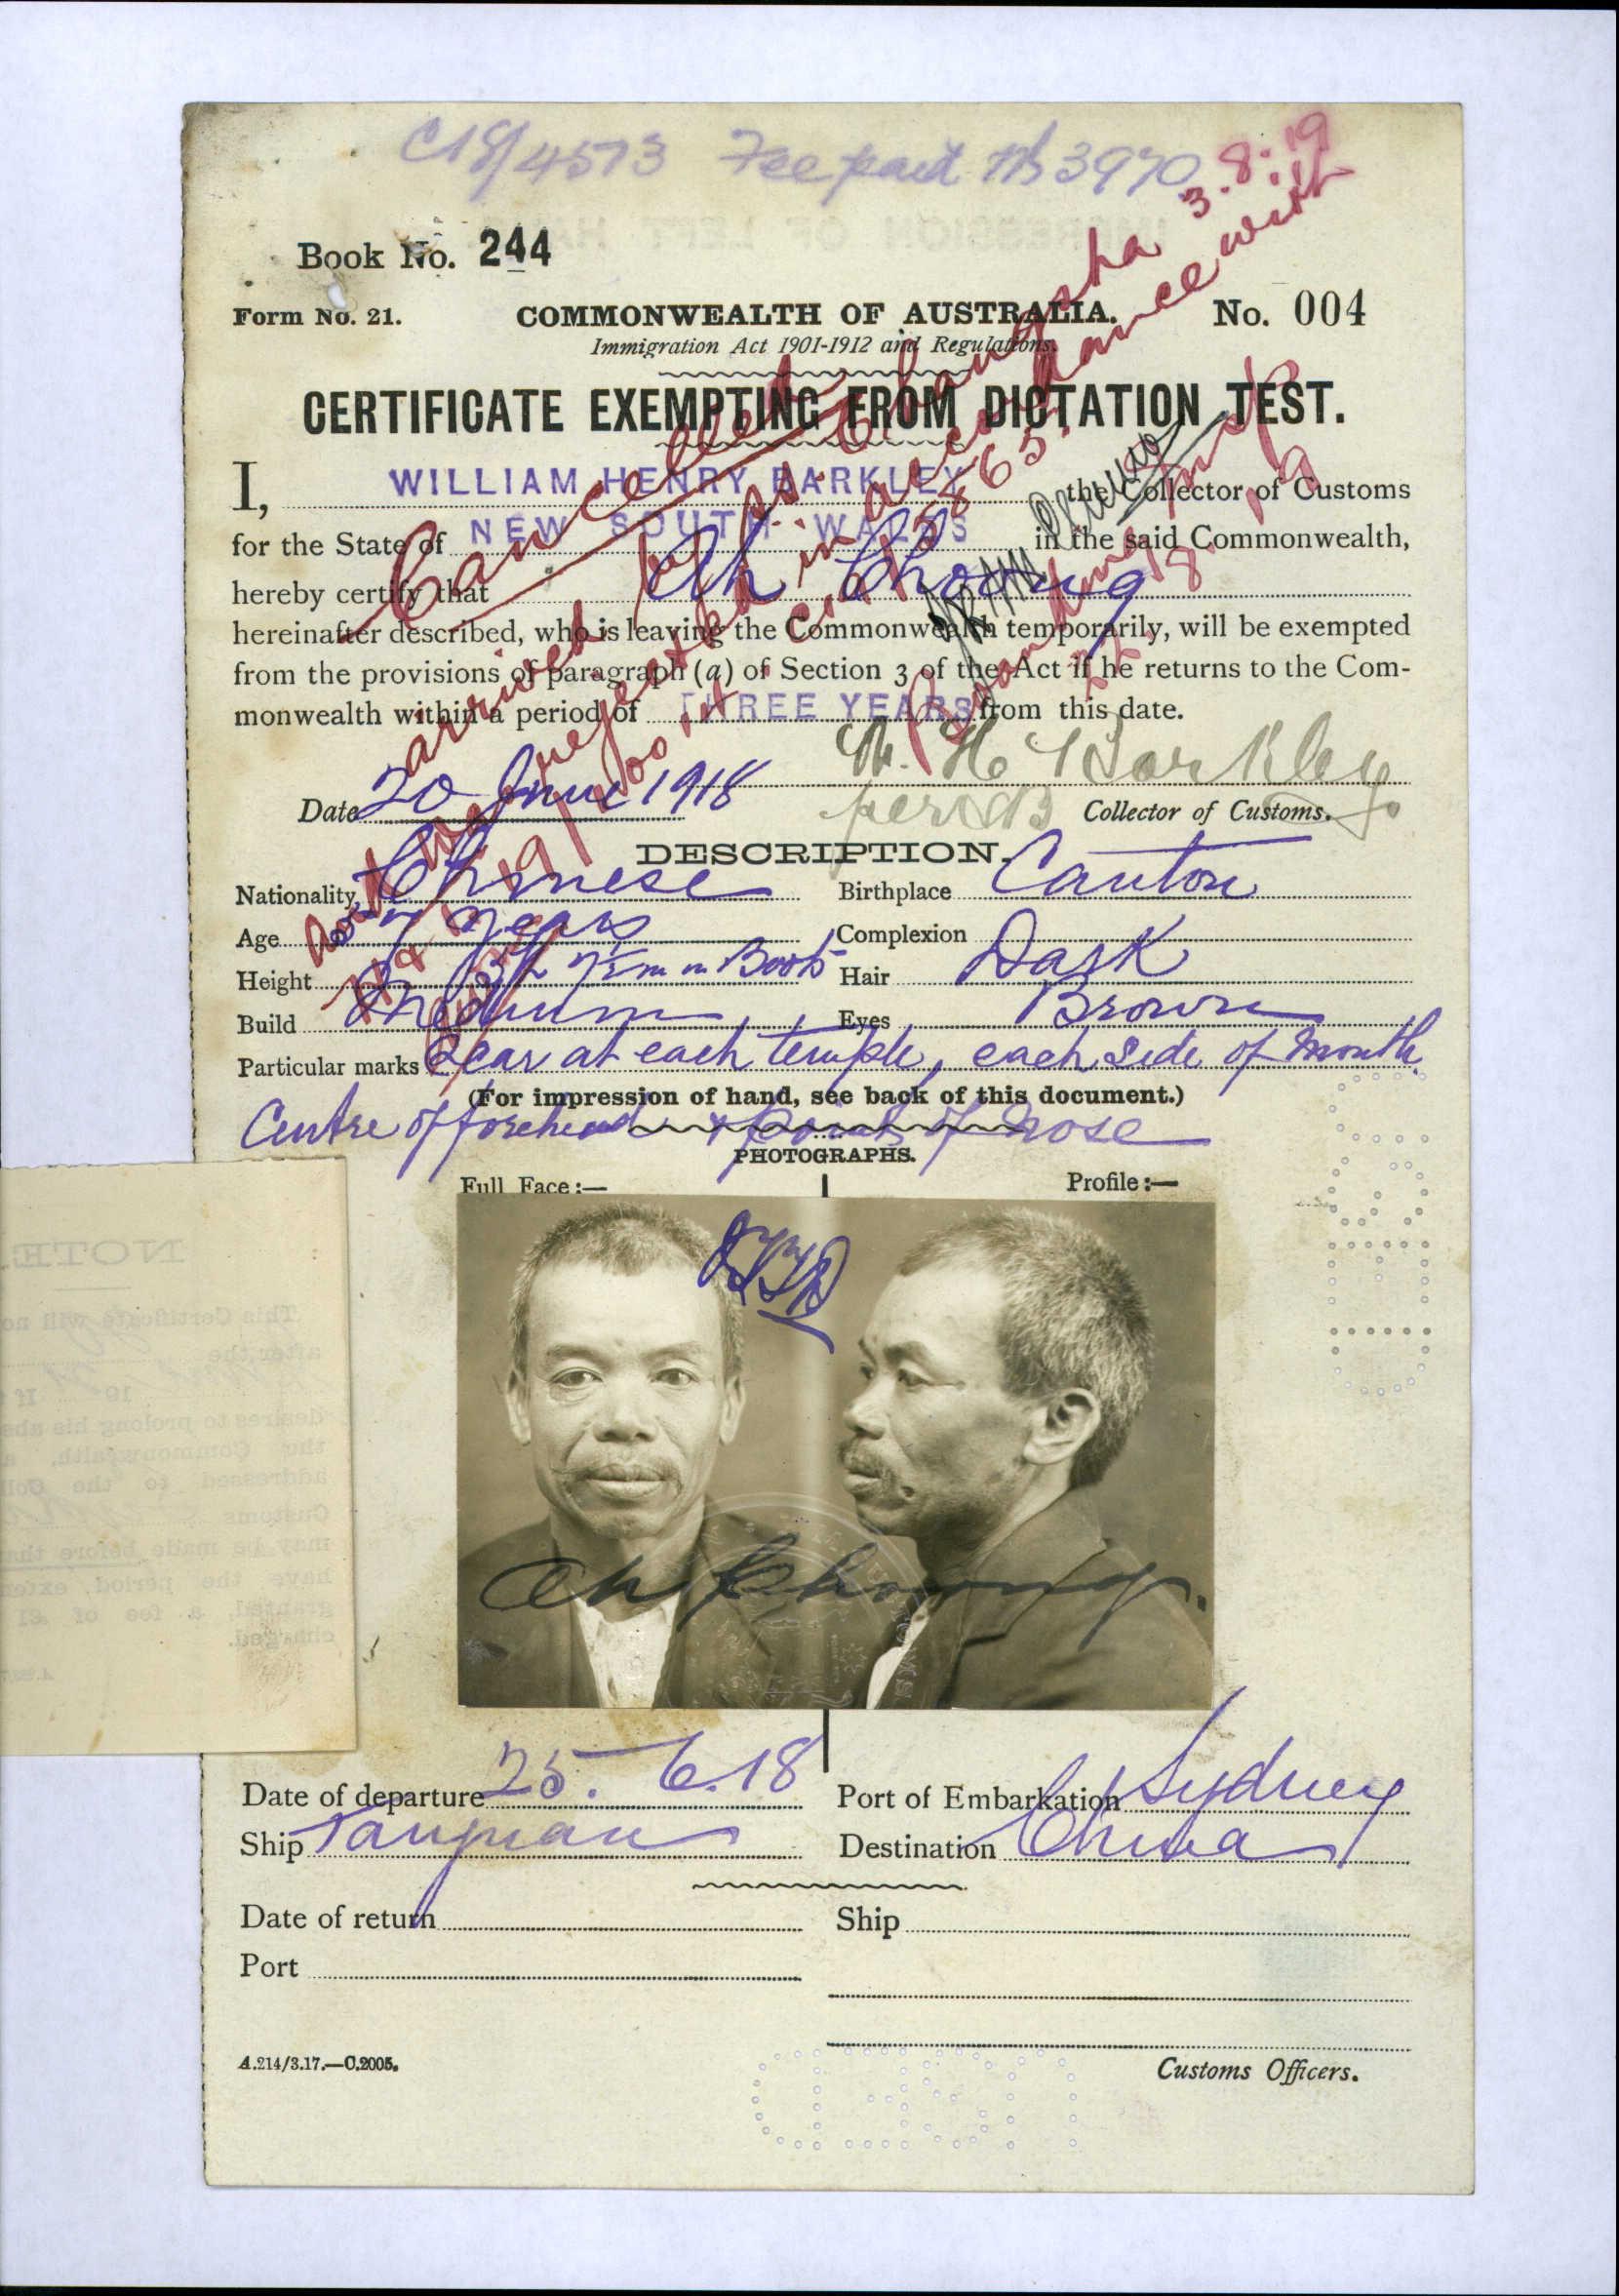 C18/4573 Fee paid 3970
Book No. 244
Form No. 21. COMMONWEALTH OF AUSTRALIA. No. 004
Immigration Act 1901-1912 and Regulations.
CERTIFICATE EXEMPTING FROM DICTATION TEST.
I, WILLIAM HENRY BARKLEY the Collector of Customs
for the State of NEW SOUTH WALES in the said Commonwealth,
hereby certify that Ah Choong
hereinafter described, who is leaving the Commonwealth temporarily, will be exempted
from the provisions of paragraph (a) of Section 3 of the Act if he returns to the Com-
monwealth within a period of THREE YEARS from this date.
W. H. Barkley
Date 20 June 1918 per Collector of Customs.
Cancelled
arrived Changsha 3.8.19
and in accordance with
DESCRIPTION.
Nationality Chinese Birthplace Canton
Age years Complexion
Height in Boots Hair Dark
Build Medium Eyes Brown
Particular marks Scar at each temple, each side of mouth
(For impression of hand, see back of this document.)
Centre of forehead & point of nose
PHOTOGRAPHS.
Full Face:— Profile:—
Ah Choong.
NOTE.
This Certificate will no
after the
19 If
desires to prolong his abs
the Commonwealth, a
addressed to the Col
Customs
may be made before tha
have the period exte
granted, a fee of £1
charged.
Date of departure 25.6.18 Port of Embarkation Sydney
Ship Taiyuan Destination China
Date of return Ship
Port
A.214/3.17.—C.2005. Customs Officers.